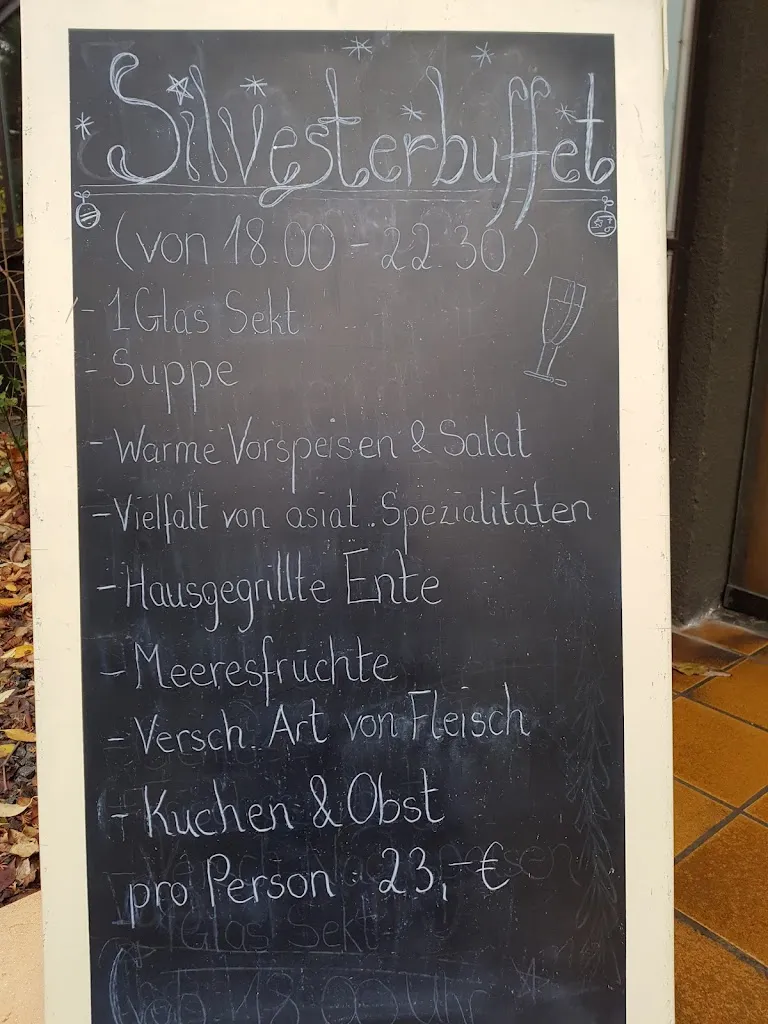 Silvesterbuffet
(von 18.00 - 22.30)
- 1 Glas Sekt
- Suppe
- Warme Vorspeisen & Salat
- Vielfalt von asiat. Spezialitäten
- Hausgegrillte Ente
- Meeresfrüchte
- Versch. Art von Fleisch
- Kuchen & Obst
pro Person 23,-€
1 Glas Sekt
(ab 18.00 Uhr